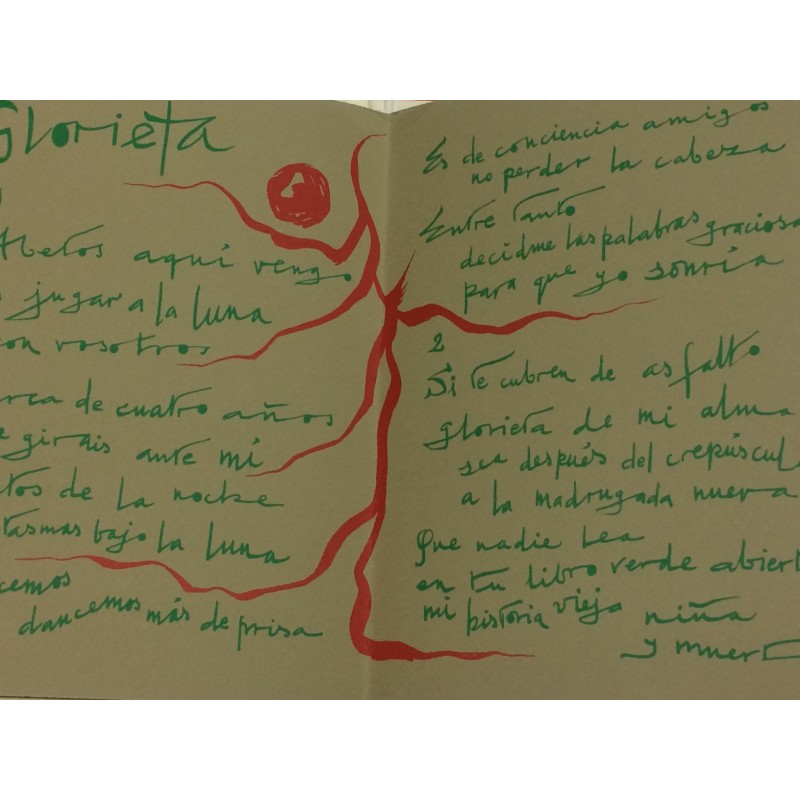 Glorieta
Abetos aquí vengo
jugar a la luna
on vosotros
rca de cuatro años
e girais ante mí
tos de la noche
tasmas bajo la luna
cemos
dancemos más de prisa
Es de conciencia amigos
no perder la cabeza
Entre tanto
decidme las palabras graciosa
para que yo sonría
2
Si te cubren de asfalto
glorieta de mi alma
sea después del crepúscul
a la madrugada nueva
Que nadie lea
en tu libro verde abiert
mi historia vieja niña
y muert